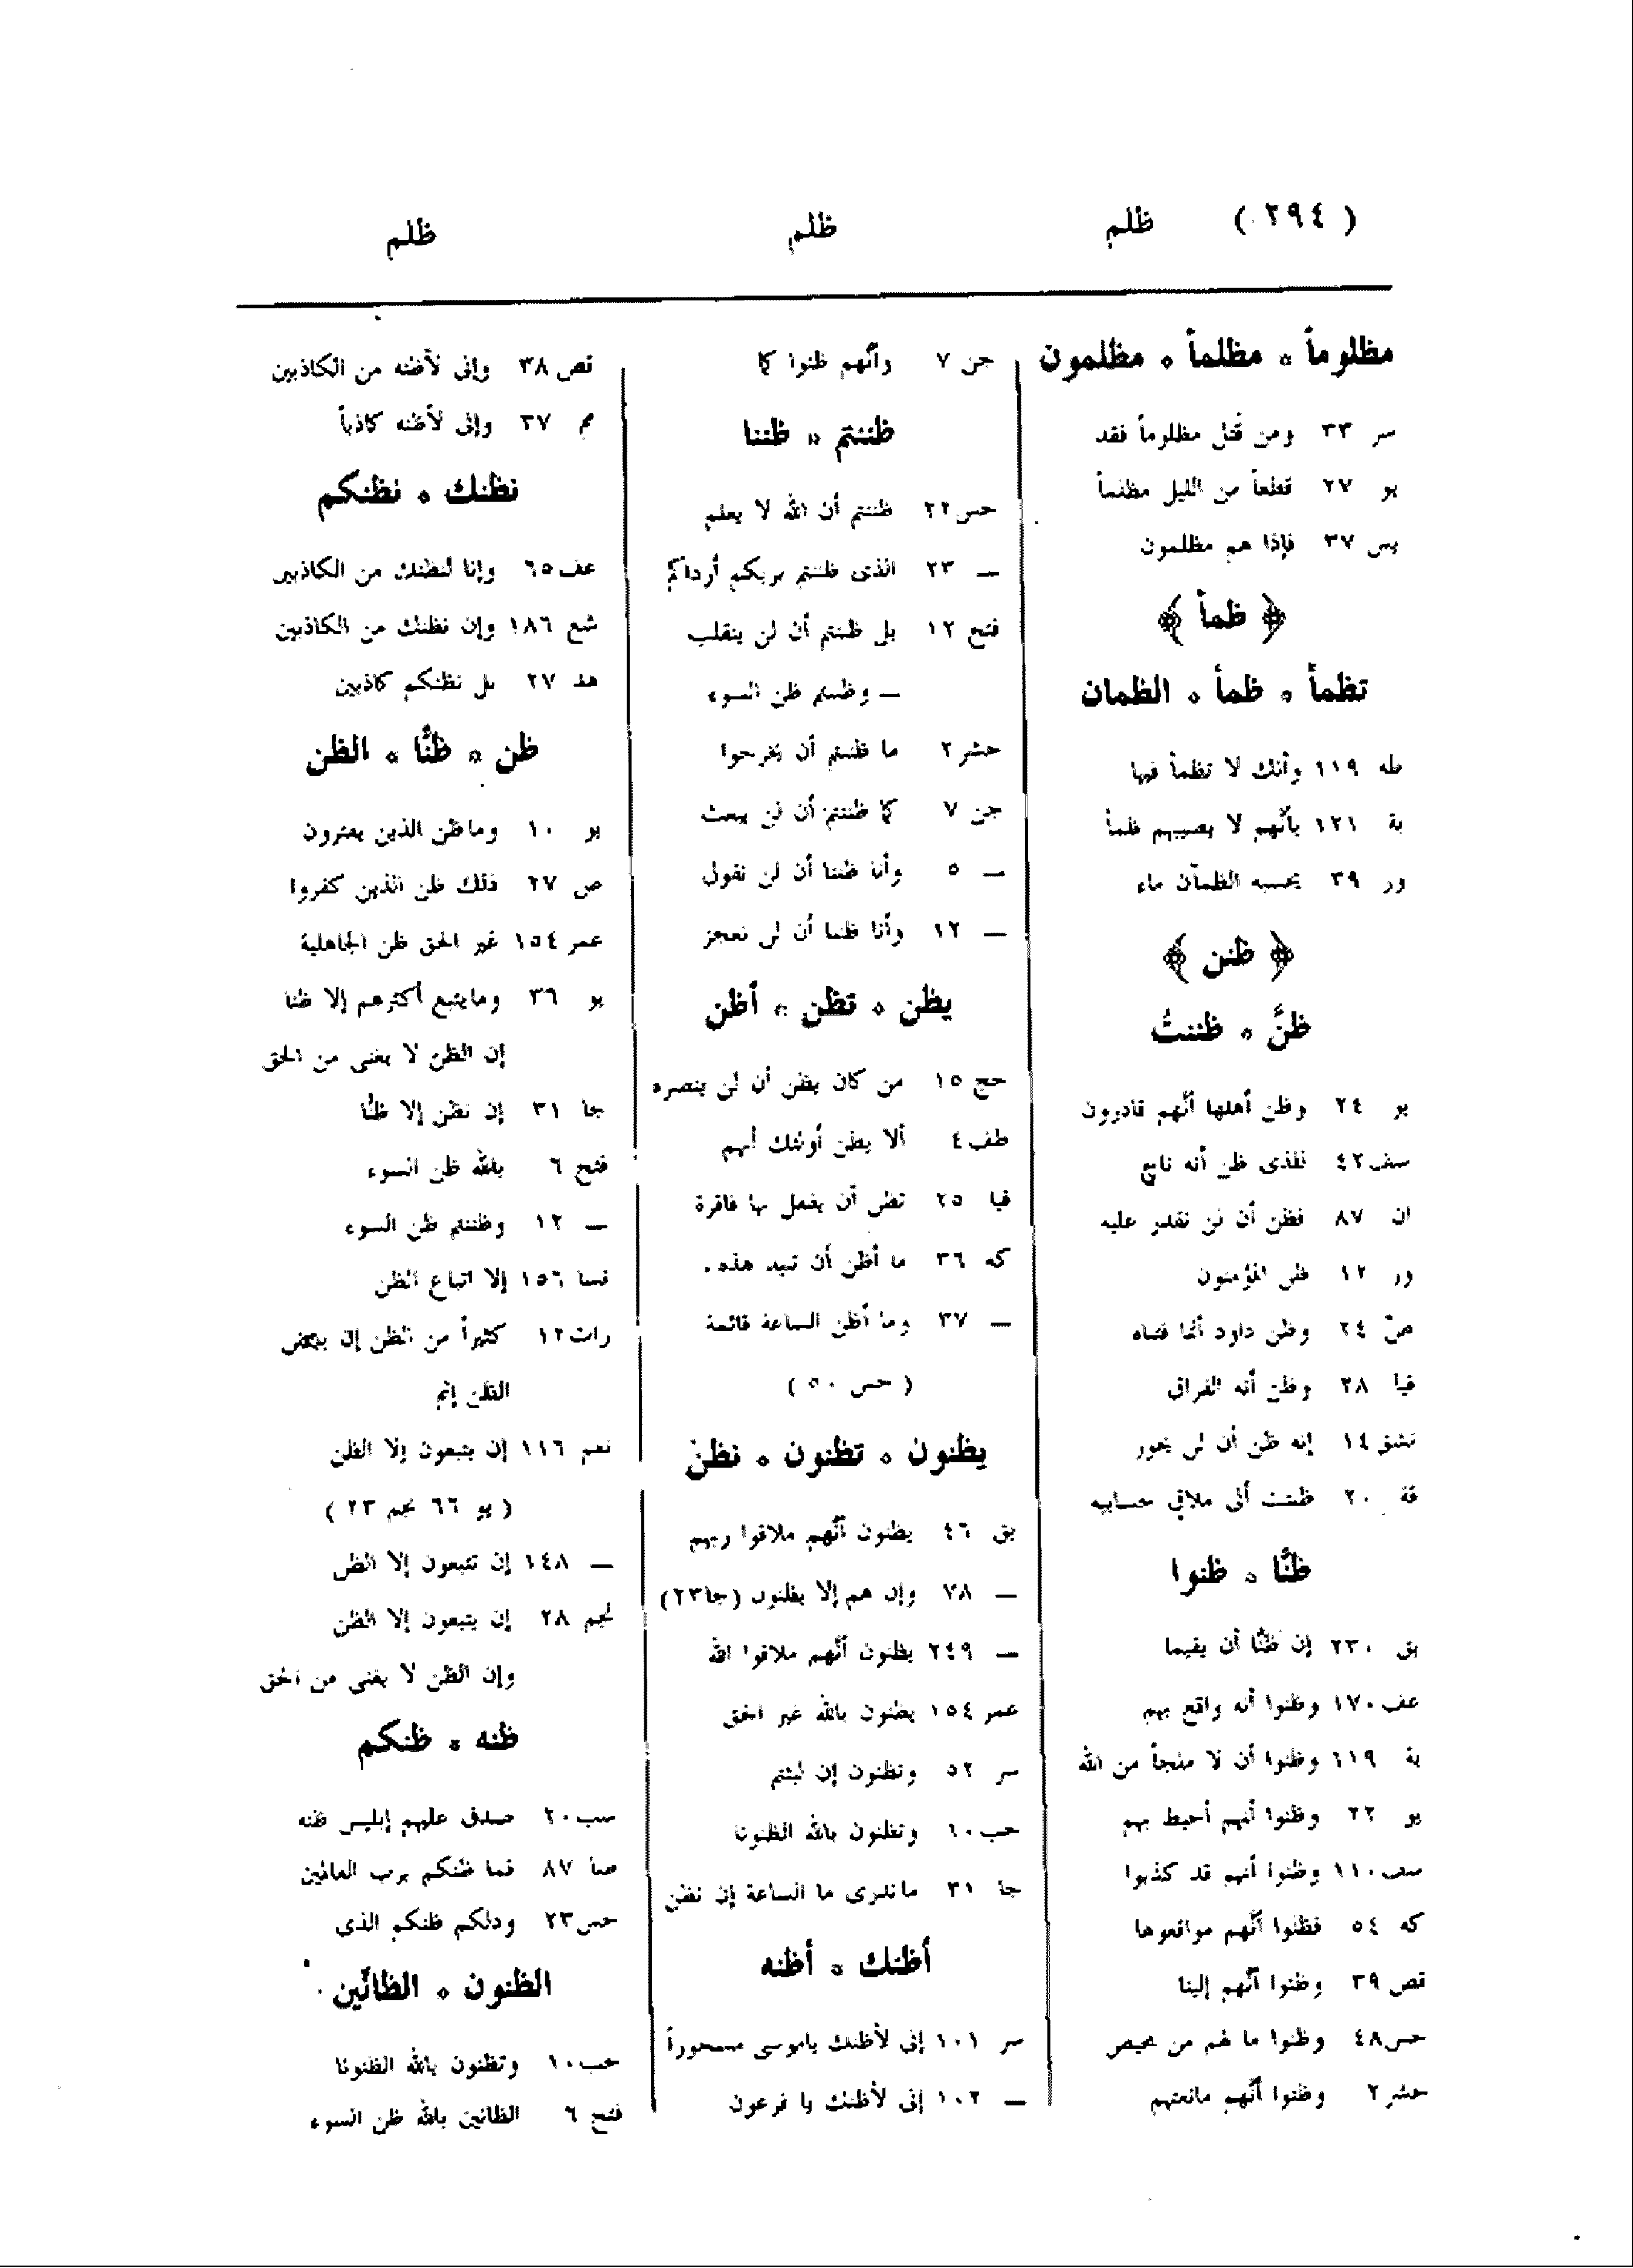 ( ٢٩٤ ) ظلم ظلم ظلم
مظلوماً * مظلماً * مظلمون
سر ٣٣ ومن قُتل مظلوماً فقد
يو ٢٧ قطعاً من الليل مظلماً
يس ٣٧ فإذا هم مظلمون
﴿ ظمأ ﴾
تظمأ * ظمأ * الظمان
طه ١١٩ وأنك لا تظمأ فيها
بة ١٢١ بأنهم لا يصيبهم ظمأ
ور ٣٩ يحسبه الظمآن ماء
﴿ ظنن ﴾
ظنَّ * ظننتُ
يو ٢٤ وظن أهلها أنهم قادرون
سف ٤٢ للذى ظن أنه ناج
ان ٨٧ فظن أن لن نقدر عليه
ور ١٢ ظن المؤمنون
صۤ ٢٤ وظن داود أنما فتناه
قيا ٢٨ وظن أنه الفراق
نشق ١٤ إنه ظن أن لن يحور
قة ٢٠ ظننت أنى ملاق حسابيه
ظنَّا * ظنوا
بق ٢٣٠ إن ظنَّا أن يقيما
عف ١٧٠ وظنوا أنه واقع بهم
بة ١١٩ وظنوا أن لا ملجأ من الله
يو ٢٢ وظنوا أنهم أحيط بهم
سف ١١٠ وظنوا أنهم قد كذبوا
كه ٥٤ فظنوا أنهم مواقعوها
قص ٣٩ وظنوا أنهم إلينا
حس ٤٨ وظنوا ما لهم من محيص
حشر ٢ وظنوا أنهم مانعتهم
جن ٧ وأنهم ظنوا كما
ظننتم * ظننا
حس ٢٢ ظننتم أن الله لا يعلم
— ٢٣ الذى ظننتم بربكم أرداكم
فتح ١٢ بل ظننتم أن لن ينقلب
— وظننتم ظن السوء
حشر ٢ ما ظننتم أن يخرجوا
جن ٧ كما ظننتم أن لن يبعث
— ٥ وأنا ظننا أن لن تقول
— ١٢ وأنا ظننا أن لن نعجز
يظن * تظن * أظن
حج ١٥ من كان يظن أن لن ينصره
طف ٤ ألا يظن أولئك أنهم
قيا ٢٥ تظن أن يفعل بها فاقرة
كه ٣٦ ما أظن أن تبيد هذه .
— ٣٧ وما أظن الساعة قائمة
( حس ٥٠ )
يظنون * تظنون * نظن
بق ٤٦ يظنون أنهم ملاقوا ربهم
— ٧٨ وإن هم إلا يظنون (جا٢٣)
— ٢٤٩ يظنون أنهم ملاقوا الله
عمر ١٥٤ يظنون بالله غير الحق
سر ٥٢ وتظنون إن لبثتم
حب ١٠ وتظنون بالله الظنونا
جا ٣١ ماندرى ما الساعة إن نظن
أظنك * أظنه
سر ١٠١ إنى لأظنك ياموسى مسحوراً
— ١٠٢ إنى لأظنك يا فرعون
قص ٣٨ وإنى لأظنه من الكاذبين
مم ٣٧ وإنى لأظنه كاذباً
نظنك * نظنكم
عف ٦٥ وإنا لنظنك من الكاذبين
شع ١٨٦ وإن نظنك من الكاذبين
هد ٢٧ بل نظنكم كاذبين
ظن * ظنًّا * الظن
يو ١٠ وماظن الذين يفترون
ص ٢٧ ذلك ظن الذين كفروا
عمر ١٥٤ غير الحق ظن الجاهلية
يو ٣٦ ومايتبع أكثرهم إلا ظنا
إن الظن لا يغنى من الحق
جا ٣١ إن نظن إلا ظنًّا
فتح ٦ بالله ظن السوء
— ١٢ وظننتم ظن السوء
نسا ١٥٦ إلا اتباع الظن
رات ١٢ كثيراً من الظن إن بعض
الظن إثم
نعم ١١٦ إن يتبعون إلا الظن
( يو ٦٦ نجم ٢٣ )
— ١٤٨ إن تتبعون إلا الظن
نجم ٢٨ إن يتبعون إلا الظن
وإن الظن لا يغنى من الحق
ظنه * ظنكم
سب ٢٠ صدق عليهم إبليس ظنه
صا ٨٧ فما ظنكم برب العالمين
حس ٢٣ وذلكم ظنكم الذى
الظنون * الظانّين
حب ١٠ وتظنون بالله الظنونا
فتح ٦ الظانين بالله ظن السوء